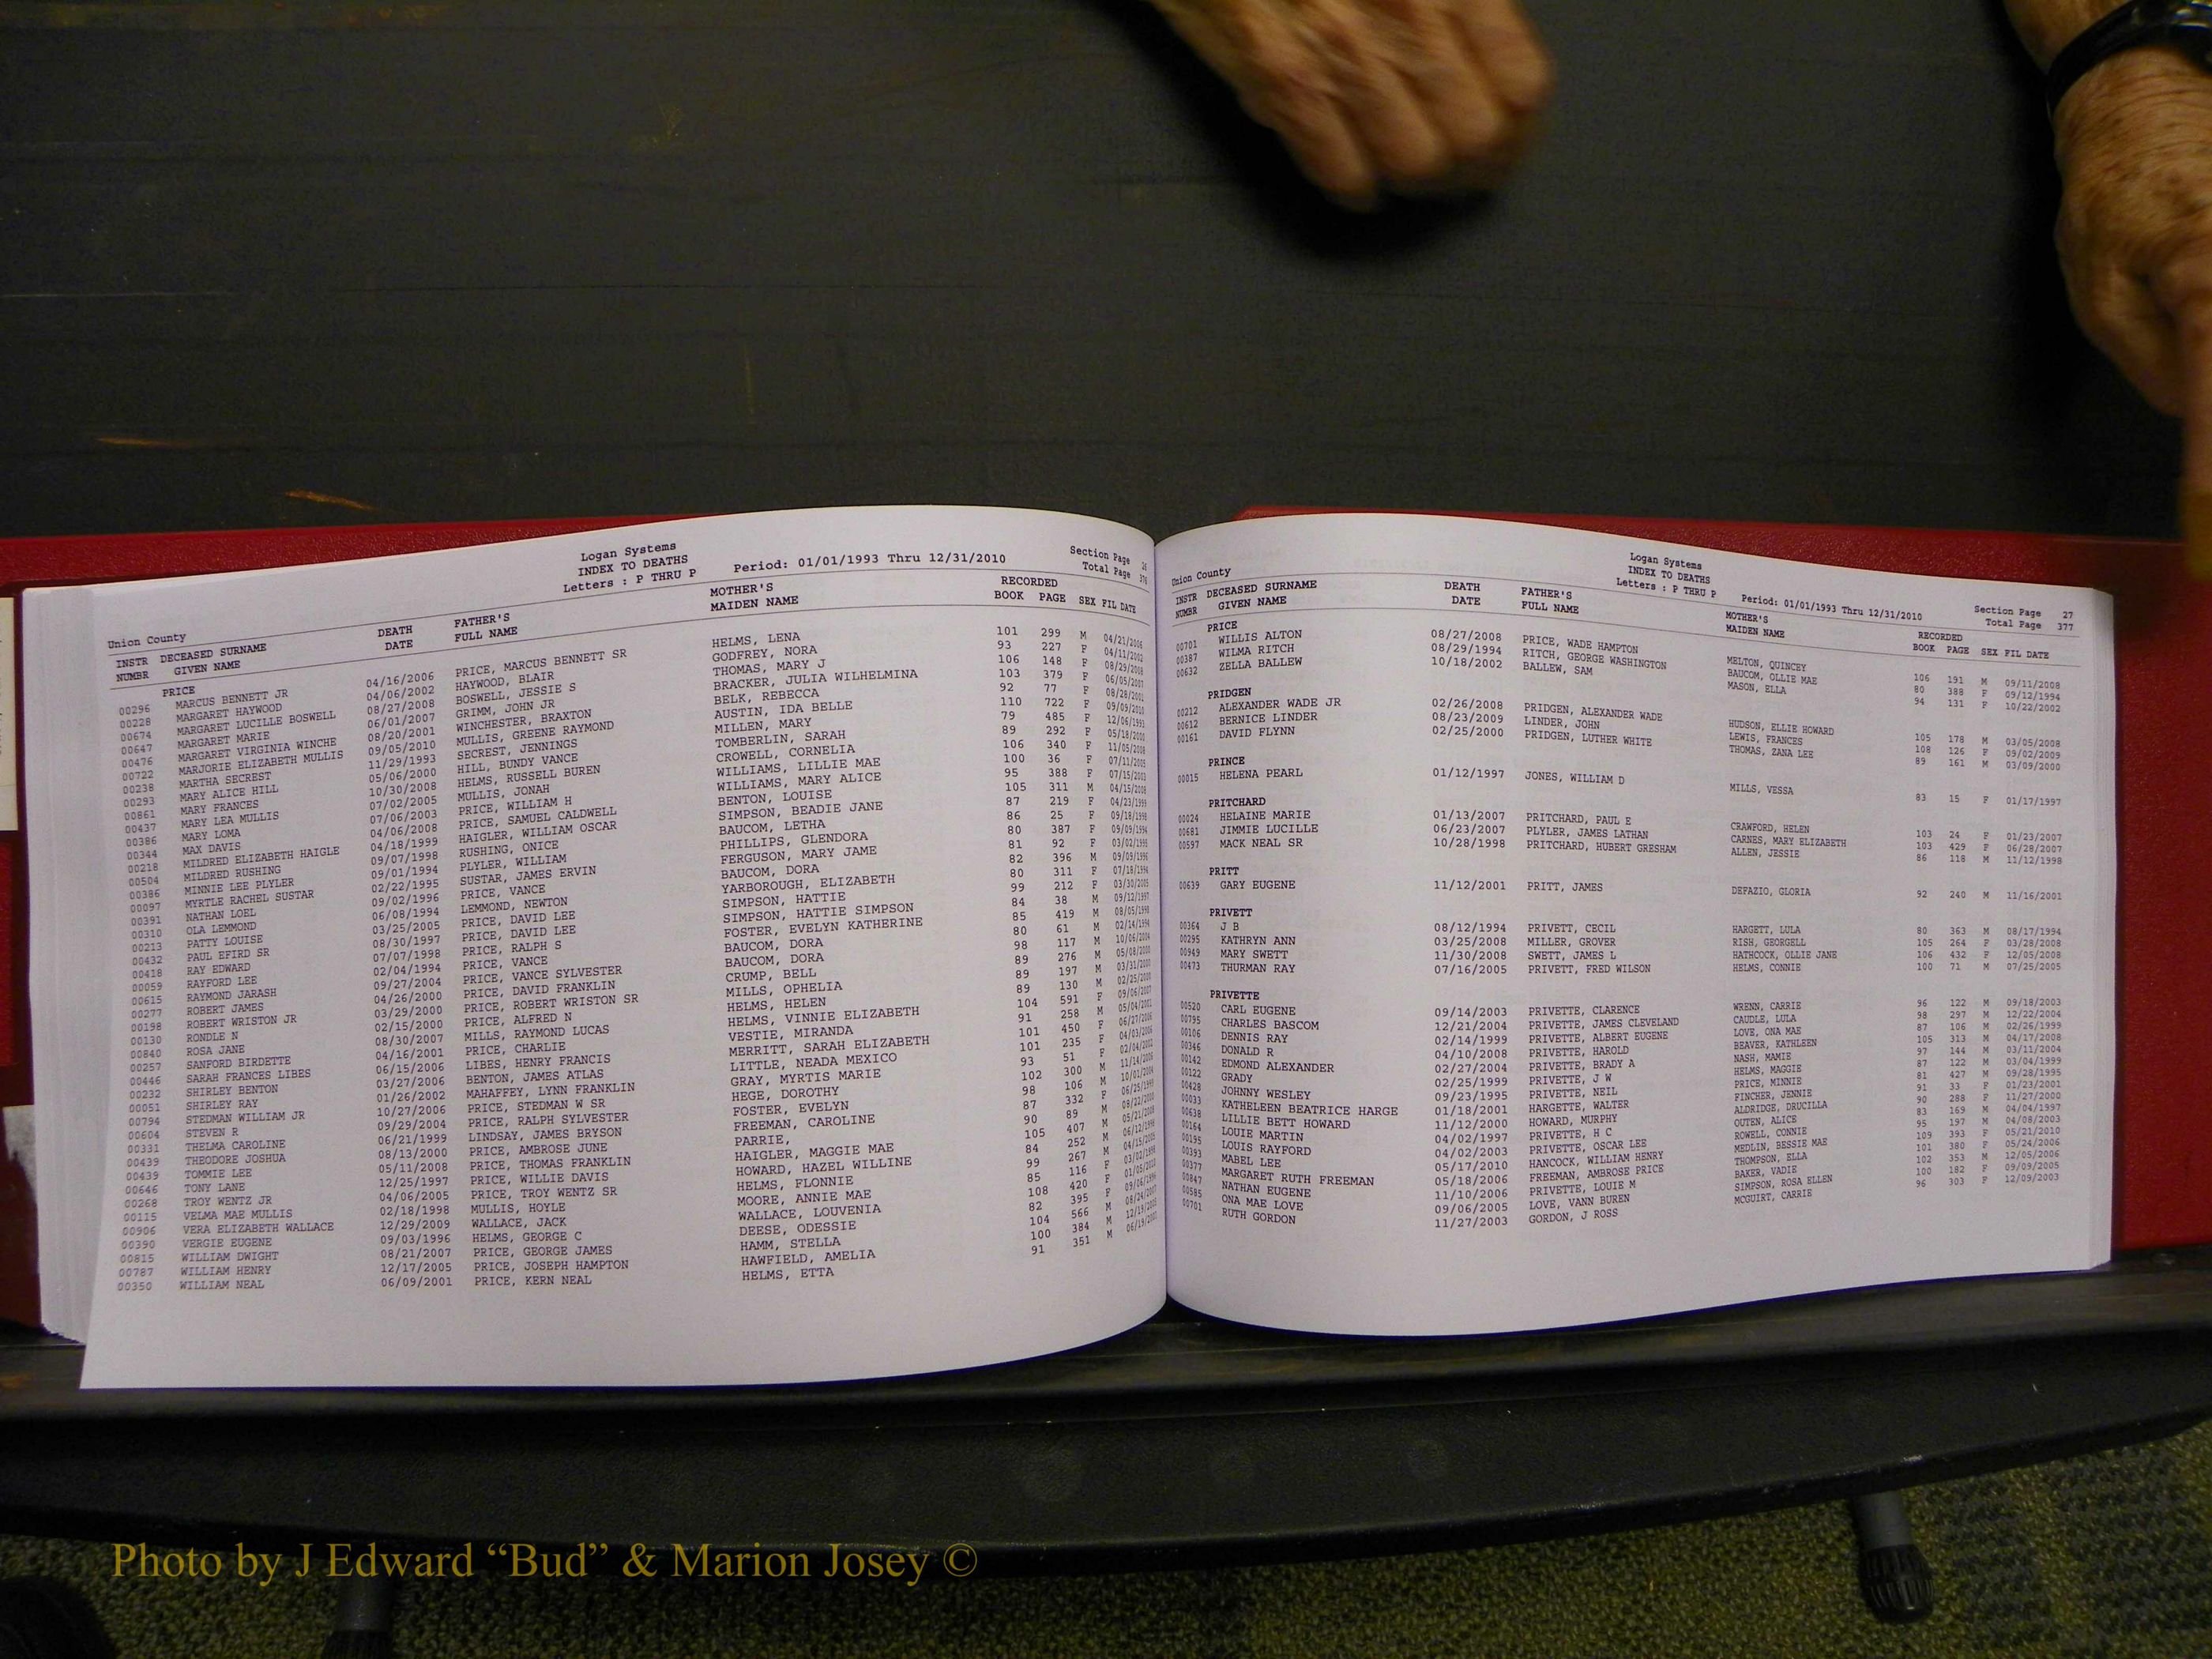 Logan Systems
INDEX TO DEATHS
Letters : P THRU P Period: 01/01/1993 Thru 12/31/2010
Section Page 26
Total Page 376
Union County
INSTR DECEASED SURNAME DEATH FATHER'S MOTHER'S RECORDED
NUMBR GIVEN NAME DATE FULL NAME MAIDEN NAME BOOK PAGE SEX FIL DATE
PRICE
00296 MARCUS BENNETT JR 04/16/2006 PRICE, MARCUS BENNETT SR HELMS, LENA 101 299 M 04/21/2006
00228 MARGARET HAYWOOD 04/06/2002 HAYWOOD, BLAIR GODFREY, NORA 93 227 F 04/11/2002
00674 MARGARET LUCILLE BOSWELL 08/27/2008 BOSWELL, JESSIE S THOMAS, MARY J 106 148 F 08/29/2008
00647 MARGARET MARIE 06/01/2007 GRIMM, JOHN JR BRACKER, JULIA WILHELMINA 103 379 F 06/05/2007
00476 MARGARET VIRGINIA WINCHE 08/20/2001 WINCHESTER, BRAXTON BELK, REBECCA 92 77 F 08/28/2001
00722 MARJORIE ELIZABETH MULLIS 09/05/2010 MULLIS, GREENE RAYMOND AUSTIN, IDA BELLE 110 722 F 09/09/2010
00238 MARTHA SECREST 11/29/1993 SECREST, JENNINGS MILLEN, MARY 79 485 F 12/06/1993
00293 MARY ALICE HILL 05/06/2000 HILL, BUNDY VANCE TOMBERLIN, SARAH 89 292 F 05/18/2000
00861 MARY FRANCES 10/30/2008 HELMS, RUSSELL BUREN CROWELL, CORNELIA 106 340 F 11/05/2008
00437 MARY LEA MULLIS 07/02/2005 MULLIS, JONAH WILLIAMS, LILLIE MAE 100 36 F 07/11/2005
00386 MARY LOMA 07/06/2003 PRICE, WILLIAM H WILLIAMS, MARY ALICE 95 388 F 07/15/2003
00344 MAX DAVIS 04/06/2008 PRICE, SAMUEL CALDWELL BENTON, LOUISE 105 311 M 04/15/2008
00218 MILDRED ELIZABETH HAIGLE 04/18/1999 HAIGLER, WILLIAM OSCAR SIMPSON, BEADIE JANE 87 219 F 04/23/1999
00504 MILDRED RUSHING 09/07/1998 RUSHING, ONICE BAUCOM, LETHA 86 25 F 09/18/1998
00386 MINNIE LEE PLYLER 09/01/1994 PLYLER, WILLIAM PHILLIPS, GLENDORA 80 387 F 09/09/1994
00097 MYRTLE RACHEL SUSTAR 02/22/1995 SUSTAR, JAMES ERVIN FERGUSON, MARY JAME 81 92 F 03/02/1995
00391 NATHAN LOEL 09/02/1996 PRICE, VANCE BAUCOM, DORA 82 396 M 09/09/1996
00310 OLA LEMMOND 06/08/1994 LEMMOND, NEWTON YARBOROUGH, ELIZABETH 80 311 F 07/18/1994
00213 PATTY LOUISE 03/25/2005 PRICE, DAVID LEE SIMPSON, HATTIE 99 212 F 03/30/2005
00432 PAUL EFIRD SR 08/30/1997 PRICE, DAVID LEE SIMPSON, HATTIE SIMPSON 84 38 M 09/12/1997
00418 RAY EDWARD 07/07/1998 PRICE, RALPH S FOSTER, EVELYN KATHERINE 85 419 M 08/05/1998
00059 RAYFORD LEE 02/04/1994 PRICE, VANCE BAUCOM, DORA 80 61 M 02/14/1994
00615 RAYMOND JARASH 09/27/2004 PRICE, VANCE SYLVESTER BAUCOM, DORA 98 117 M 10/06/2004
00277 ROBERT JAMES 04/26/2000 PRICE, DAVID FRANKLIN CRUMP, BELL 89 276 M 05/08/2000
00198 ROBERT WRISTON JR 03/29/2000 PRICE, ROBERT WRISTON SR MILLS, OPHELIA 89 197 M 03/31/2000
00130 RONDLE N 02/15/2000 PRICE, ALFRED N HELMS, HELEN 89 130 M 02/25/2000
00840 ROSA JANE 08/30/2007 MILLS, RAYMOND LUCAS HELMS, VINNIE ELIZABETH 104 591 F 09/06/2007
00257 SANFORD BIRDETTE 04/16/2001 PRICE, CHARLIE VESTIE, MIRANDA 91 258 M 05/04/2001
00446 SARAH FRANCES LIBES 06/15/2006 LIBES, HENRY FRANCIS MERRITT, SARAH ELIZABETH 101 450 F 06/27/2006
00232 SHIRLEY BENTON 03/27/2006 BENTON, JAMES ATLAS LITTLE, NEADA MEXICO 101 235 F 04/03/2006
00051 SHIRLEY RAY 01/26/2002 MAHAFFEY, LYNN FRANKLIN GRAY, MYRTIS MARIE 93 51 F 02/04/2002
00794 STEDMAN WILLIAM JR 10/27/2006 PRICE, STEDMAN W SR HEGE, DOROTHY 102 300 M 11/14/2006
00604 STEVEN R 09/29/2004 PRICE, RALPH SYLVESTER FOSTER, EVELYN 98 106 M 10/01/2004
00331 THELMA CAROLINE 06/21/1999 LINDSAY, JAMES BRYSON FREEMAN, CAROLINE 87 332 F 06/25/1999
00439 THEODORE JOSHUA 08/13/2000 PRICE, AMBROSE JUNE PARRIE, 90 89 M 08/22/2000
00439 TOMMIE LEE 05/11/2008 PRICE, THOMAS FRANKLIN HAIGLER, MAGGIE MAE 105 407 M 05/21/2008
00646 TONY LANE 12/25/1997 PRICE, WILLIE DAVIS HOWARD, HAZEL WILLINE 84 252 M 06/12/1998
00268 TROY WENTZ JR 04/06/2005 PRICE, TROY WENTZ SR HELMS, FLONNIE 99 267 M 04/15/2005
00115 VELMA MAE MULLIS 02/18/1998 MULLIS, HOYLE MOORE, ANNIE MAE 85 116 F 03/02/1998
00906 VERA ELIZABETH WALLACE 12/29/2009 WALLACE, JACK WALLACE, LOUVENIA 108 420 F 01/05/2010
00390 VERGIE EUGENE 09/03/1996 HELMS, GEORGE C DEESE, ODESSIE 82 395 F 09/06/1996
00815 WILLIAM DWIGHT 08/21/2007 PRICE, GEORGE JAMES HAMM, STELLA 104 566 M 08/24/2007
00787 WILLIAM HENRY 12/17/2005 PRICE, JOSEPH HAMPTON HAWFIELD, AMELIA 100 384 M 12/19/2005
00350 WILLIAM NEAL 06/09/2001 PRICE, KERN NEAL HELMS, ETTA 91 351 M 06/19/2001
Logan Systems
INDEX TO DEATHS
Letters : P THRU P Period: 01/01/1993 Thru 12/31/2010
Section Page 27
Total Page 377
Union County
INSTR DECEASED SURNAME DEATH FATHER'S MOTHER'S RECORDED
NUMBR GIVEN NAME DATE FULL NAME MAIDEN NAME BOOK PAGE SEX FIL DATE
PRICE
00701 WILLIS ALTON 08/27/2008 PRICE, WADE HAMPTON MELTON, QUINCEY 106 191 M 09/11/2008
00387 WILMA RITCH 08/29/1994 RITCH, GEORGE WASHINGTON BAUCOM, OLLIE MAE 80 388 F 09/12/1994
00632 ZELLA BALLEW 10/18/2002 BALLEW, SAM MASON, ELLA 94 131 F 10/22/2002
PRIDGEN
00212 ALEXANDER WADE JR 02/26/2008 PRIDGEN, ALEXANDER WADE HUDSON, ELLIE HOWARD 105 178 M 03/05/2008
00612 BERNICE LINDER 08/23/2009 LINDER, JOHN LEWIS, FRANCES 108 126 F 09/02/2009
00161 DAVID FLYNN 02/25/2000 PRIDGEN, LUTHER WHITE THOMAS, ZANA LEE 89 161 M 03/09/2000
PRINCE
00015 HELENA PEARL 01/12/1997 JONES, WILLIAM D MILLS, VESSA 83 15 F 01/17/1997
PRITCHARD
00024 HELAINE MARIE 01/13/2007 PRITCHARD, PAUL E CRAWFORD, HELEN 103 24 F 01/23/2007
00681 JIMMIE LUCILLE 06/23/2007 PLYLER, JAMES LATHAN CARNES, MARY ELIZABETH 103 429 F 06/28/2007
00597 MACK NEAL SR 10/28/1998 PRITCHARD, HUBERT GRESHAM ALLEN, JESSIE 86 118 M 11/12/1998
PRITT
00639 GARY EUGENE 11/12/2001 PRITT, JAMES DEFAZIO, GLORIA 92 240 M 11/16/2001
PRIVETT
00364 J B 08/12/1994 PRIVETT, CECIL HARGETT, LULA 80 363 M 08/17/1994
00295 KATHRYN ANN 03/25/2008 MILLER, GROVER RISH, GEORGELL 105 264 F 03/28/2008
00949 MARY SWETT 11/30/2008 SWETT, JAMES L HATHCOCK, OLLIE JANE 106 432 F 12/05/2008
00473 THURMAN RAY 07/16/2005 PRIVETT, FRED WILSON HELMS, CONNIE 100 71 M 07/25/2005
PRIVETTE
00520 CARL EUGENE 09/14/2003 PRIVETTE, CLARENCE WRENN, CARRIE 96 122 M 09/18/2003
00795 CHARLES BASCOM 12/21/2004 PRIVETTE, JAMES CLEVELAND CAUDLE, LULA 98 297 M 12/22/2004
00106 DENNIS RAY 02/14/1999 PRIVETTE, ALBERT EUGENE LOVE, ONA MAE 87 106 M 02/26/1999
00346 DONALD R 04/10/2008 PRIVETTE, HAROLD BEAVER, KATHLEEN 105 313 M 04/17/2008
00142 EDMOND ALEXANDER 02/27/2004 PRIVETTE, BRADY A NASH, MAMIE 97 144 M 03/11/2004
00122 GRADY 02/25/1999 PRIVETTE, J W HELMS, MAGGIE 87 122 M 03/04/1999
00428 JOHNNY WESLEY 09/23/1995 PRIVETTE, NEIL PRICE, MINNIE 81 427 M 09/28/1995
00033 KATHELEEN BEATRICE HARGE 01/18/2001 HARGETTE, WALTER FINCHER, JENNIE 91 33 F 01/23/2001
00638 LILLIE BETT HOWARD 11/12/2000 HOWARD, MURPHY ALDRIDGE, DRUCILLA 90 288 F 11/27/2000
00164 LOUIE MARTIN 04/02/1997 PRIVETTE, H C OUTEN, ALICE 83 169 M 04/04/1997
00195 LOUIS RAYFORD 04/02/2003 PRIVETTE, OSCAR LEE ROWELL, CONNIE 95 197 M 04/08/2003
00393 MABEL LEE 05/17/2010 HANCOCK, WILLIAM HENRY MEDLIN, BESSIE MAE 109 393 F 05/21/2010
00377 MARGARET RUTH FREEMAN 05/18/2006 FREEMAN, AMBROSE PRICE THOMPSON, ELLA 101 380 F 05/24/2006
00847 NATHAN EUGENE 11/10/2006 PRIVETTE, LOUIE M BAKER, VADIE 102 353 M 12/05/2006
00585 ONA MAE LOVE 09/06/2005 LOVE, VANN BUREN SIMPSON, ROSA ELLEN 100 182 F 09/09/2005
00701 RUTH GORDON 11/27/2003 GORDON, J ROSS MCGUIRT, CARRIE 96 303 F 12/09/2003
Photo by J Edward “Bud” & Marion Josey ©